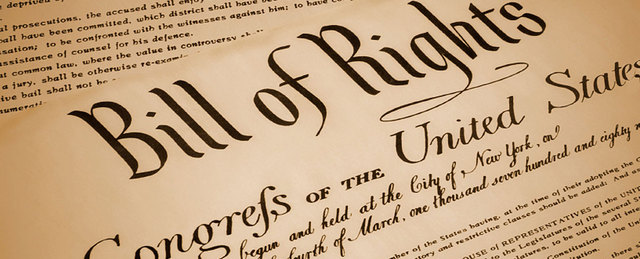 be deprived of
al prosecutions, the accused shall enjoy
all have been committed, which district shall have be
sation; to be confronted with the witnesses against him; to have co
assistance of counsel for his defence.
at common law, where the value in controversy shall
a jury, shall be otherwise re-exami
ive bail shall not be
numerati
Bill of Rights
Congreſs OF THE United States
begun and held at the City of New York, on
fourth of March, one thousand seven hundred and eighty n
mber of the States having, at the time of their adopting the
atory and restrictive clauses should be added: And as
OUSE OF REPRESENTATIVES of the UNI
to the Legislatures of the several S
to be valid to all inte
Constitution of the